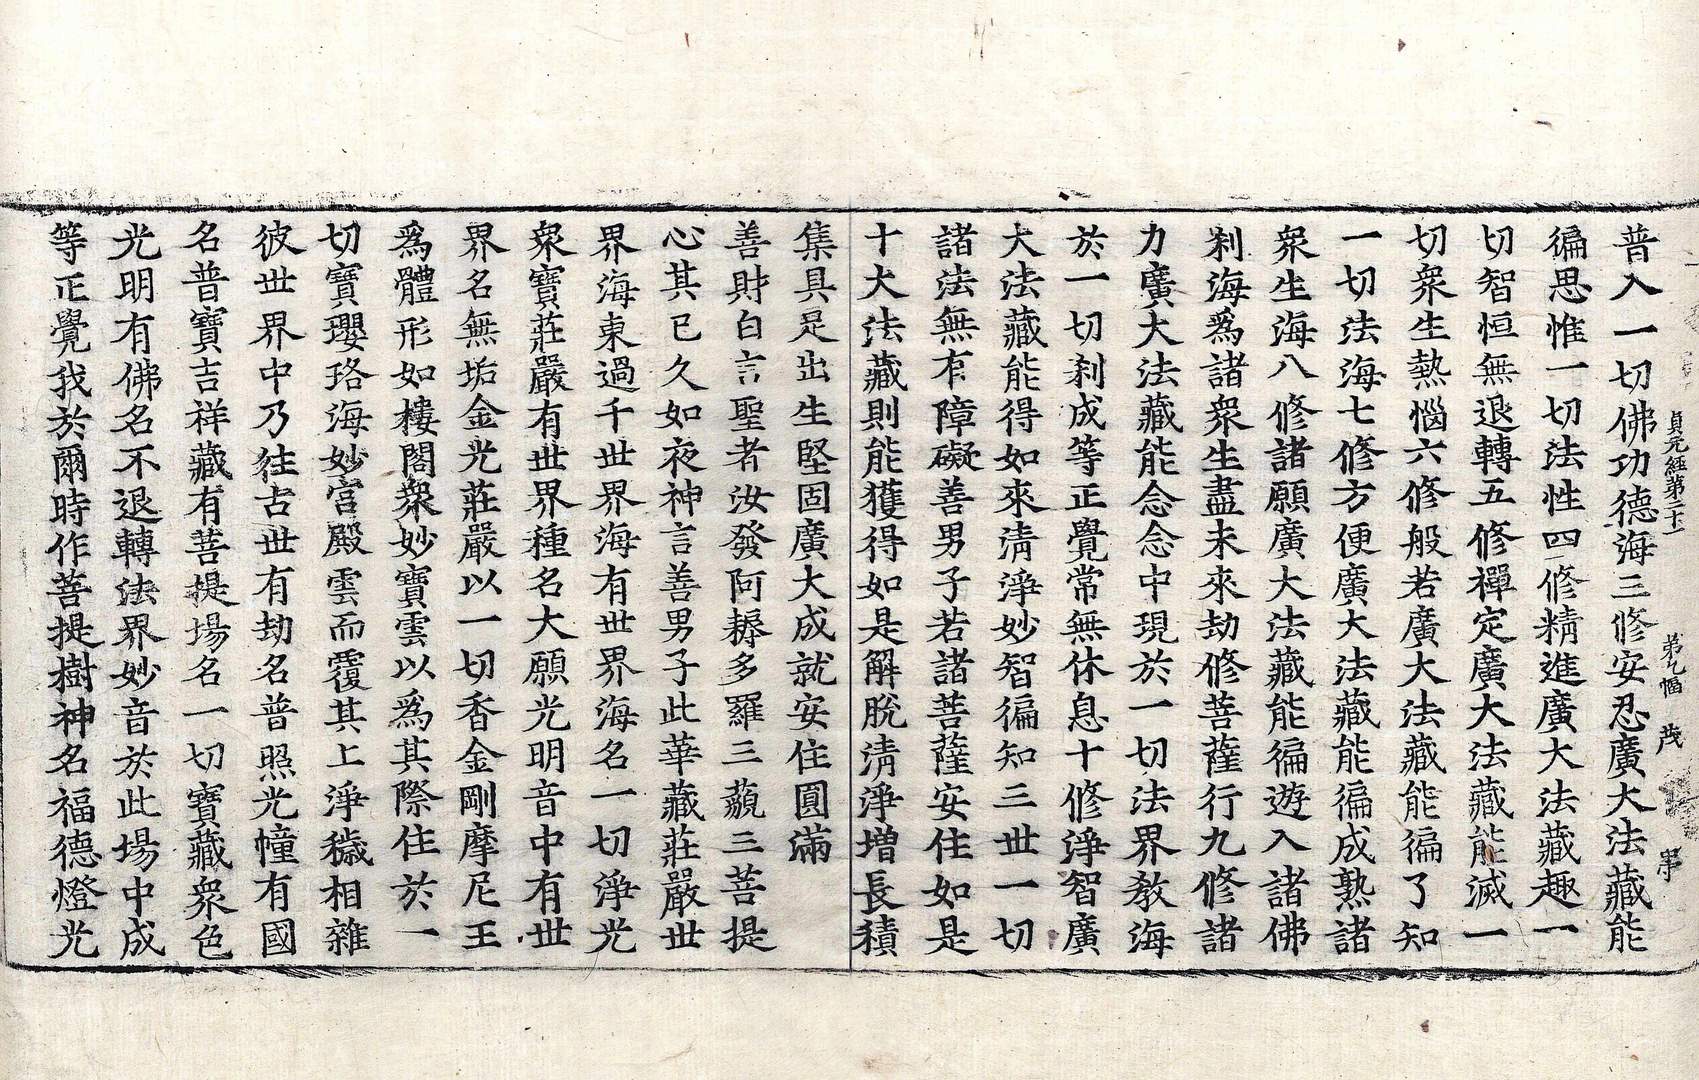 貞元經第二十一 茂
普入一切佛功德海三修安忍廣大法藏能
徧思惟一切法性四修精進廣大法藏趣一
切智恒無退轉五修禪定廣大法藏能滅一
切衆生熱惱六修般若廣大法藏能徧了知
一切法海七修方便廣大法藏能徧成熟諸
衆生海八修諸願廣大法藏能徧遊入諸佛
刹海爲諸衆生盡未來劫修菩薩行九修諸
力廣大法藏能念念中現於一切法界教海
於一切刹成等正覺常無休息十修淨智廣
大法藏能得如來清淨妙智徧知三世一切
諸法無有障礙善男子若諸菩薩安住如是
十大法藏則能獲得如是解脫清淨增長積
集具足出生堅固廣大成就安住圓滿
善財白言聖者汝發阿耨多羅三藐三菩提
心其已久如夜神言善男子此華藏莊嚴世
界海東過千世界海有世界海名一切淨光
衆寶莊嚴有世界種名大願光明音中有世
界名無垢金光莊嚴以一切香金剛摩尼王
爲體形如樓閣衆妙寶雲以爲其際住於一
切寶瓔珞海妙宮殿雲而覆其上淨穢相雜
彼世界中乃往古世有劫名普照光幢有國
名普寶吉祥藏有菩提場名一切寶藏衆色
光明有佛名不退轉法界妙音於此場中成
等正覺我於爾時作菩提樹神名福德燈光